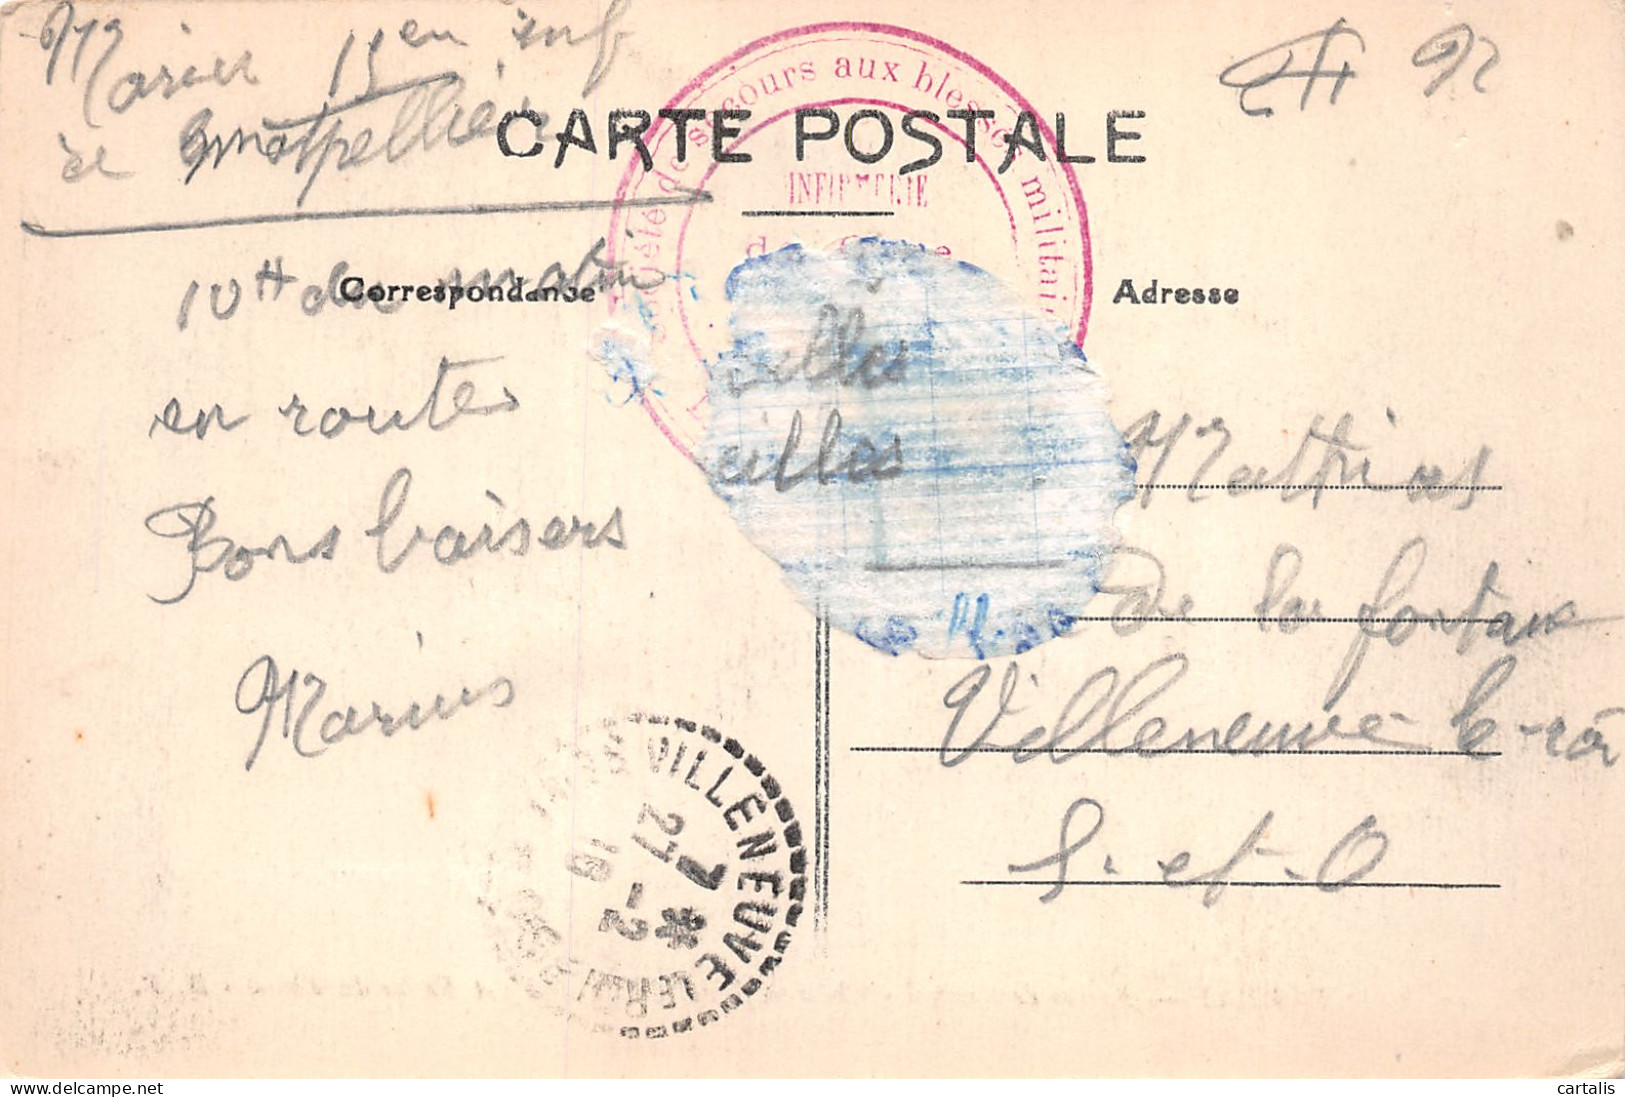 Marius 15en inf
de Montpellier
F M
CARTE POSTALE
Société de secours aux blessés militai
INFIRMERIE
de gare
Correspondance
Adresse
10H du matin
en routes
Bons baisers
Marius
elles
eilles
Mathias
de la fontaine
Villeneuve le-roi
S. et-O
VILLENEUVE LE ROI
7 *
27 -2
16
cartalis